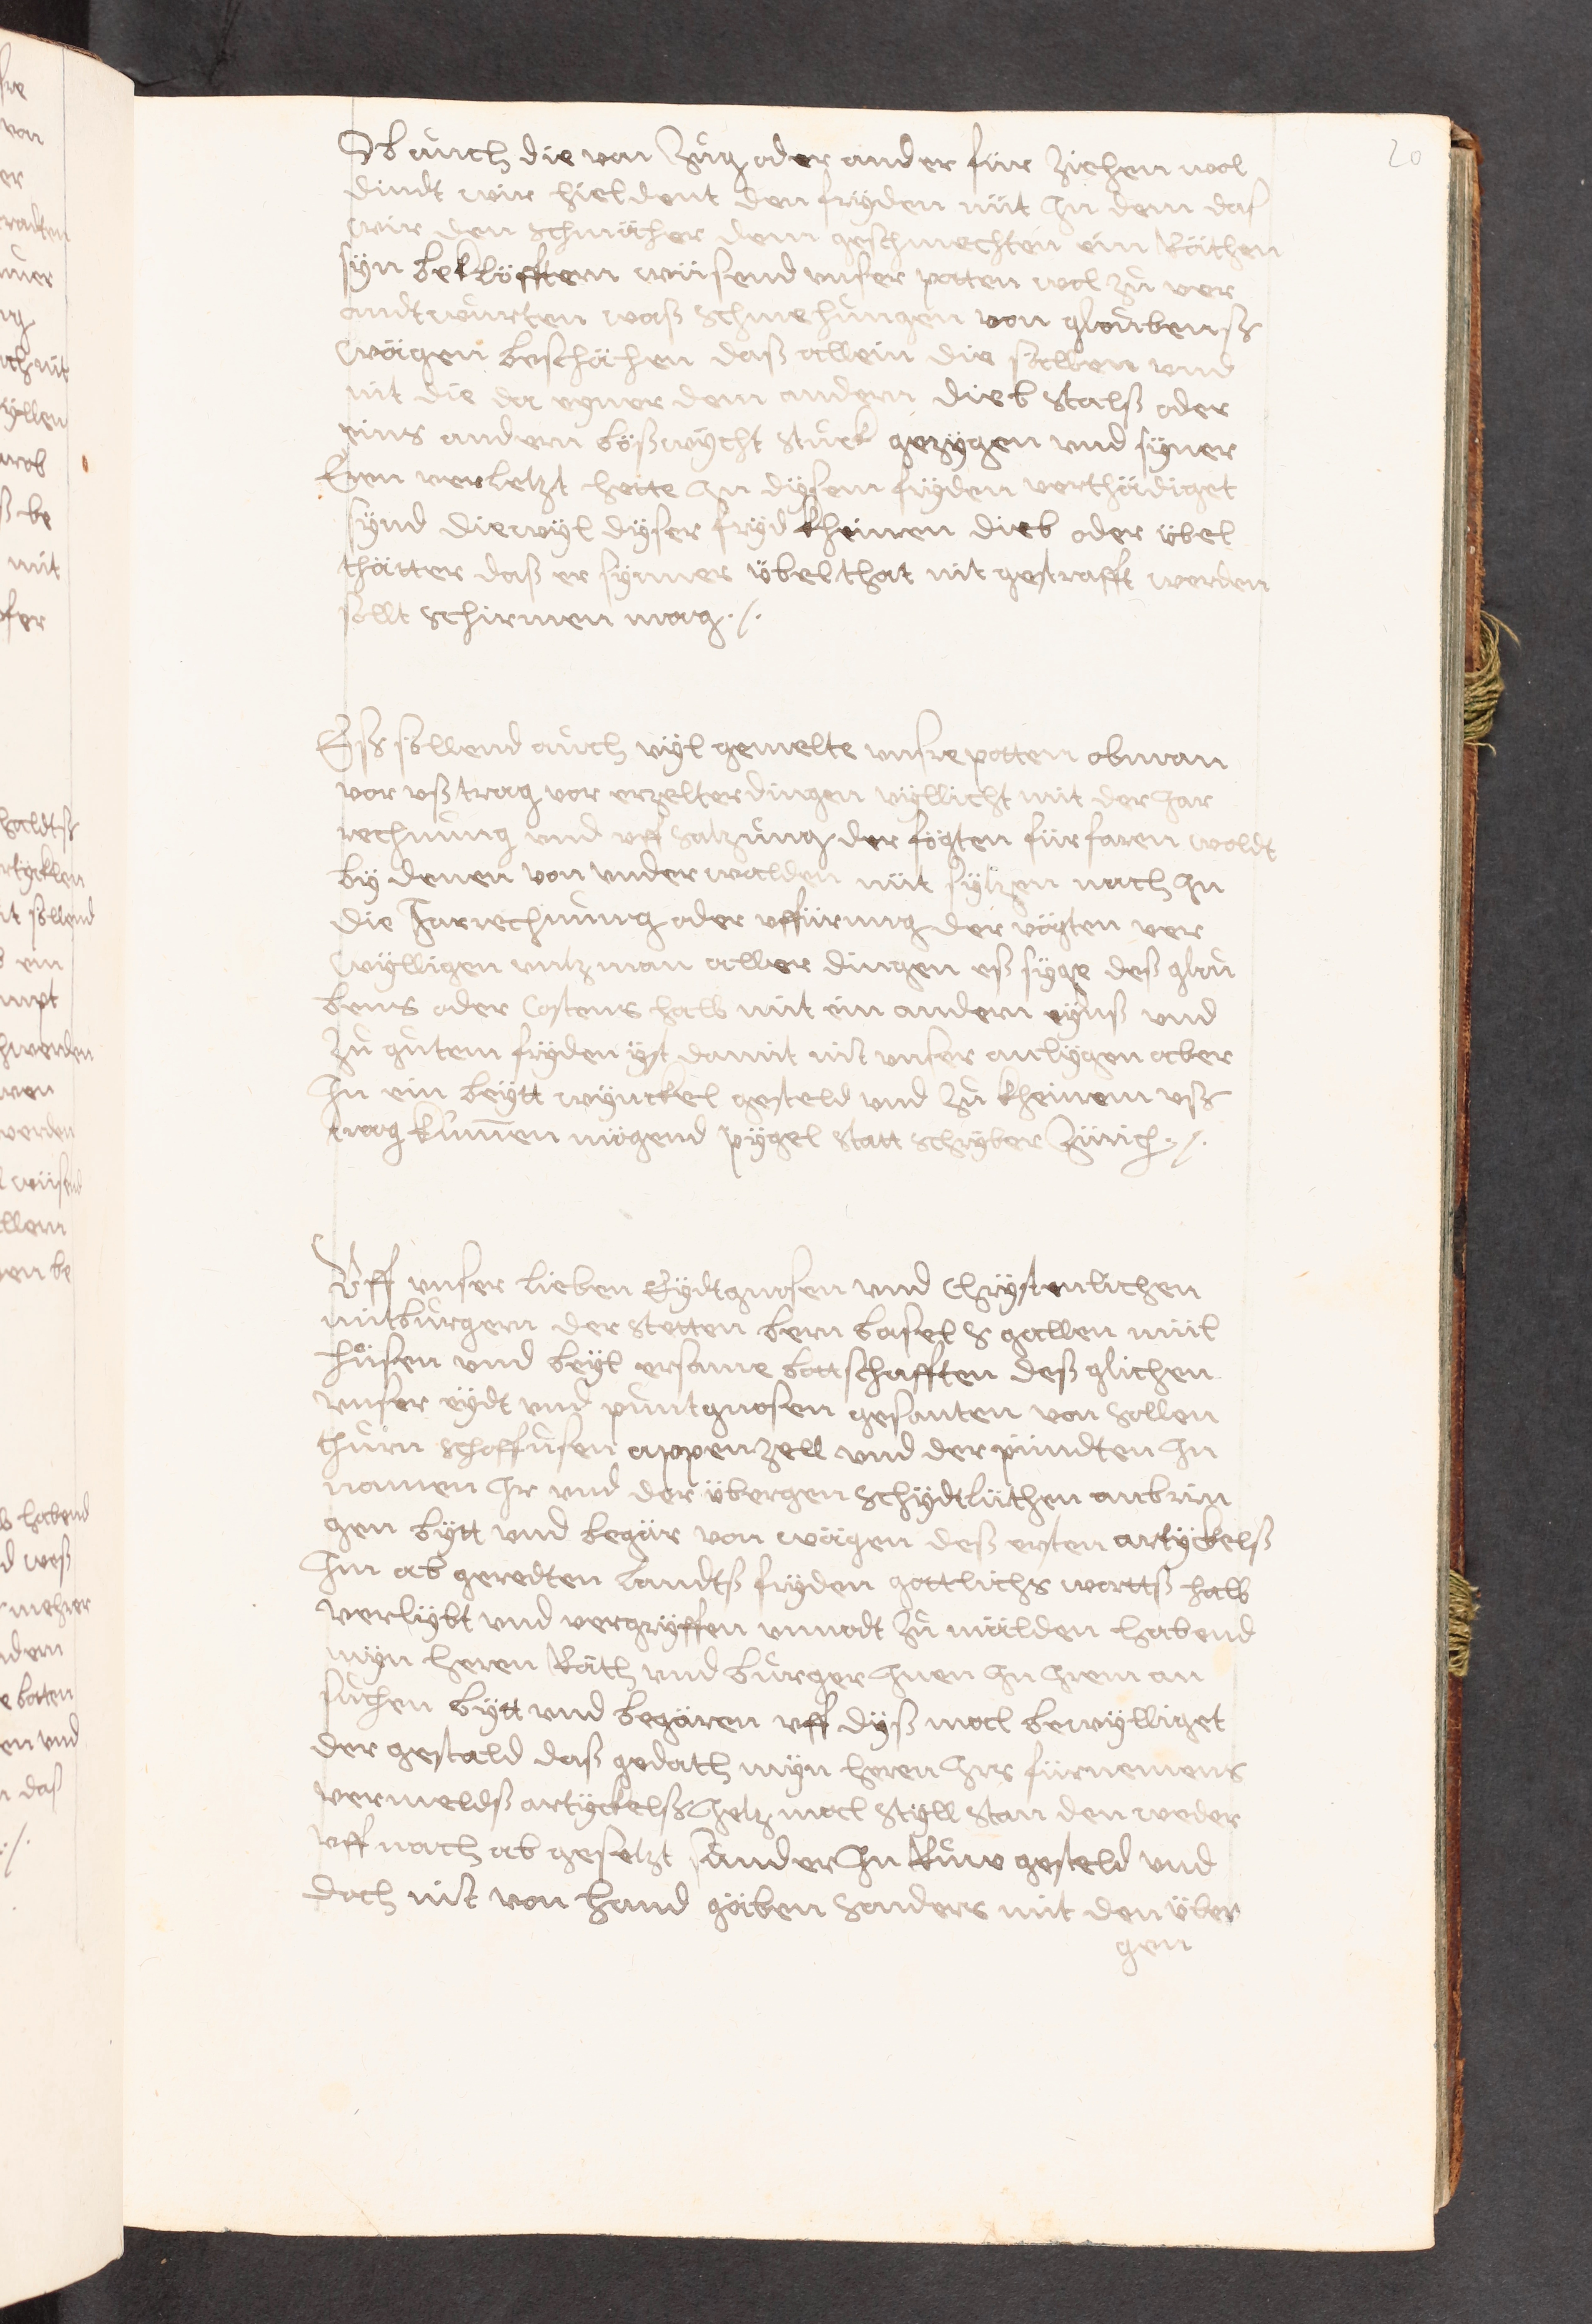 20
Ob auch die von Zug oder ander für ziehen wol
dindt wir hieldent den fryden nüt jn dem das
wir den schmächer dem geschmechten ein
syn wüsend unser potten wol zu ver
andtwurten waß schmehungen von gloubenß
wägen beschächen daß allein die sälben und
nit die da eyner dem andern dieb stalß oder
eins andern bößwycht stuck gezygen und syner
Eren verletzt hette jn dysem fryden verthädiget
synd diewyl dyser fryd kheinen dieb oder übel
thätter daß er synner übelthat nit gestrafft werden
sollt schirmen mag ./.
Eß sollend auch vyl gemelte unsre potten obman
vor uß trag vor erzelter dingen vyllicht mit der jar
rechnung und uff satzung der fögten für faren woldt
by denen von underwalden nüt sytzen nach jn
die Jarrechnung oder uffürung der vögten ver
wylligen untz man aller dingen eß syge deß glou
bens oder Costens halb mit ein andern eynß und
zu gutem fryden yst damit nit unser anlygen aber
jn ein beytt wynckel gesteld und zu kheinem uß
trag kumen mögend pygel statt schryber Zürich ./.
Uff unser lieben Eydtgnosen und Chrystenlichen
mitburgern der stetten bern basel S gallen mül
husen und beyl ersame bottschafften deß glichen
unser eydt und puntgnosen gesanten von sollen
thurn schaffusen appenzell und der pündten jn
namen jr und der übergen schydtlüthen anbrin
gen bytt und begär von wägen deß ersten artyckelß
jm ab geredten landtß fryden gottlichs worttß halb
verlybt und vergryffen unnodt zu mälden habend
myn heren Räth und burger jnen jn jrem an
suchen bytt und begären uff dyß mal bewylliget
der gestald daß gedath myn heren jrs fürnemens
vermeldß artyckelß jetz mal styll stan den weder
uff nach ab gesetzt sunder jn Ruw gesteld und
doch nit von hand gäben sonders mit den über
gen